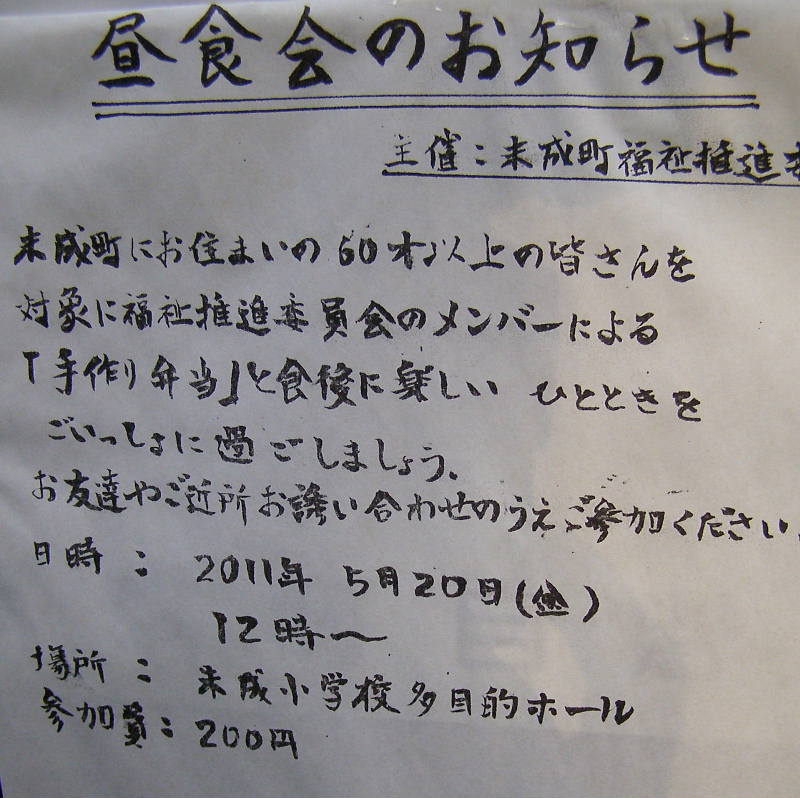 昼食会のお知らせ
主催：末成町福祉推進委
末成町にお住まいの60才以上の皆さんを
対象に福祉推進委員会のメンバーによる
「手作り弁当」と食後に楽しい ひとときを
ごいっしょに過ごしましょう。
お友達やご近所お誘い合わせのうえご参加ください。
日時： 2011年 5月20日(金)
12時〜
場所： 末成小学校多目的ホール
参加費：200円